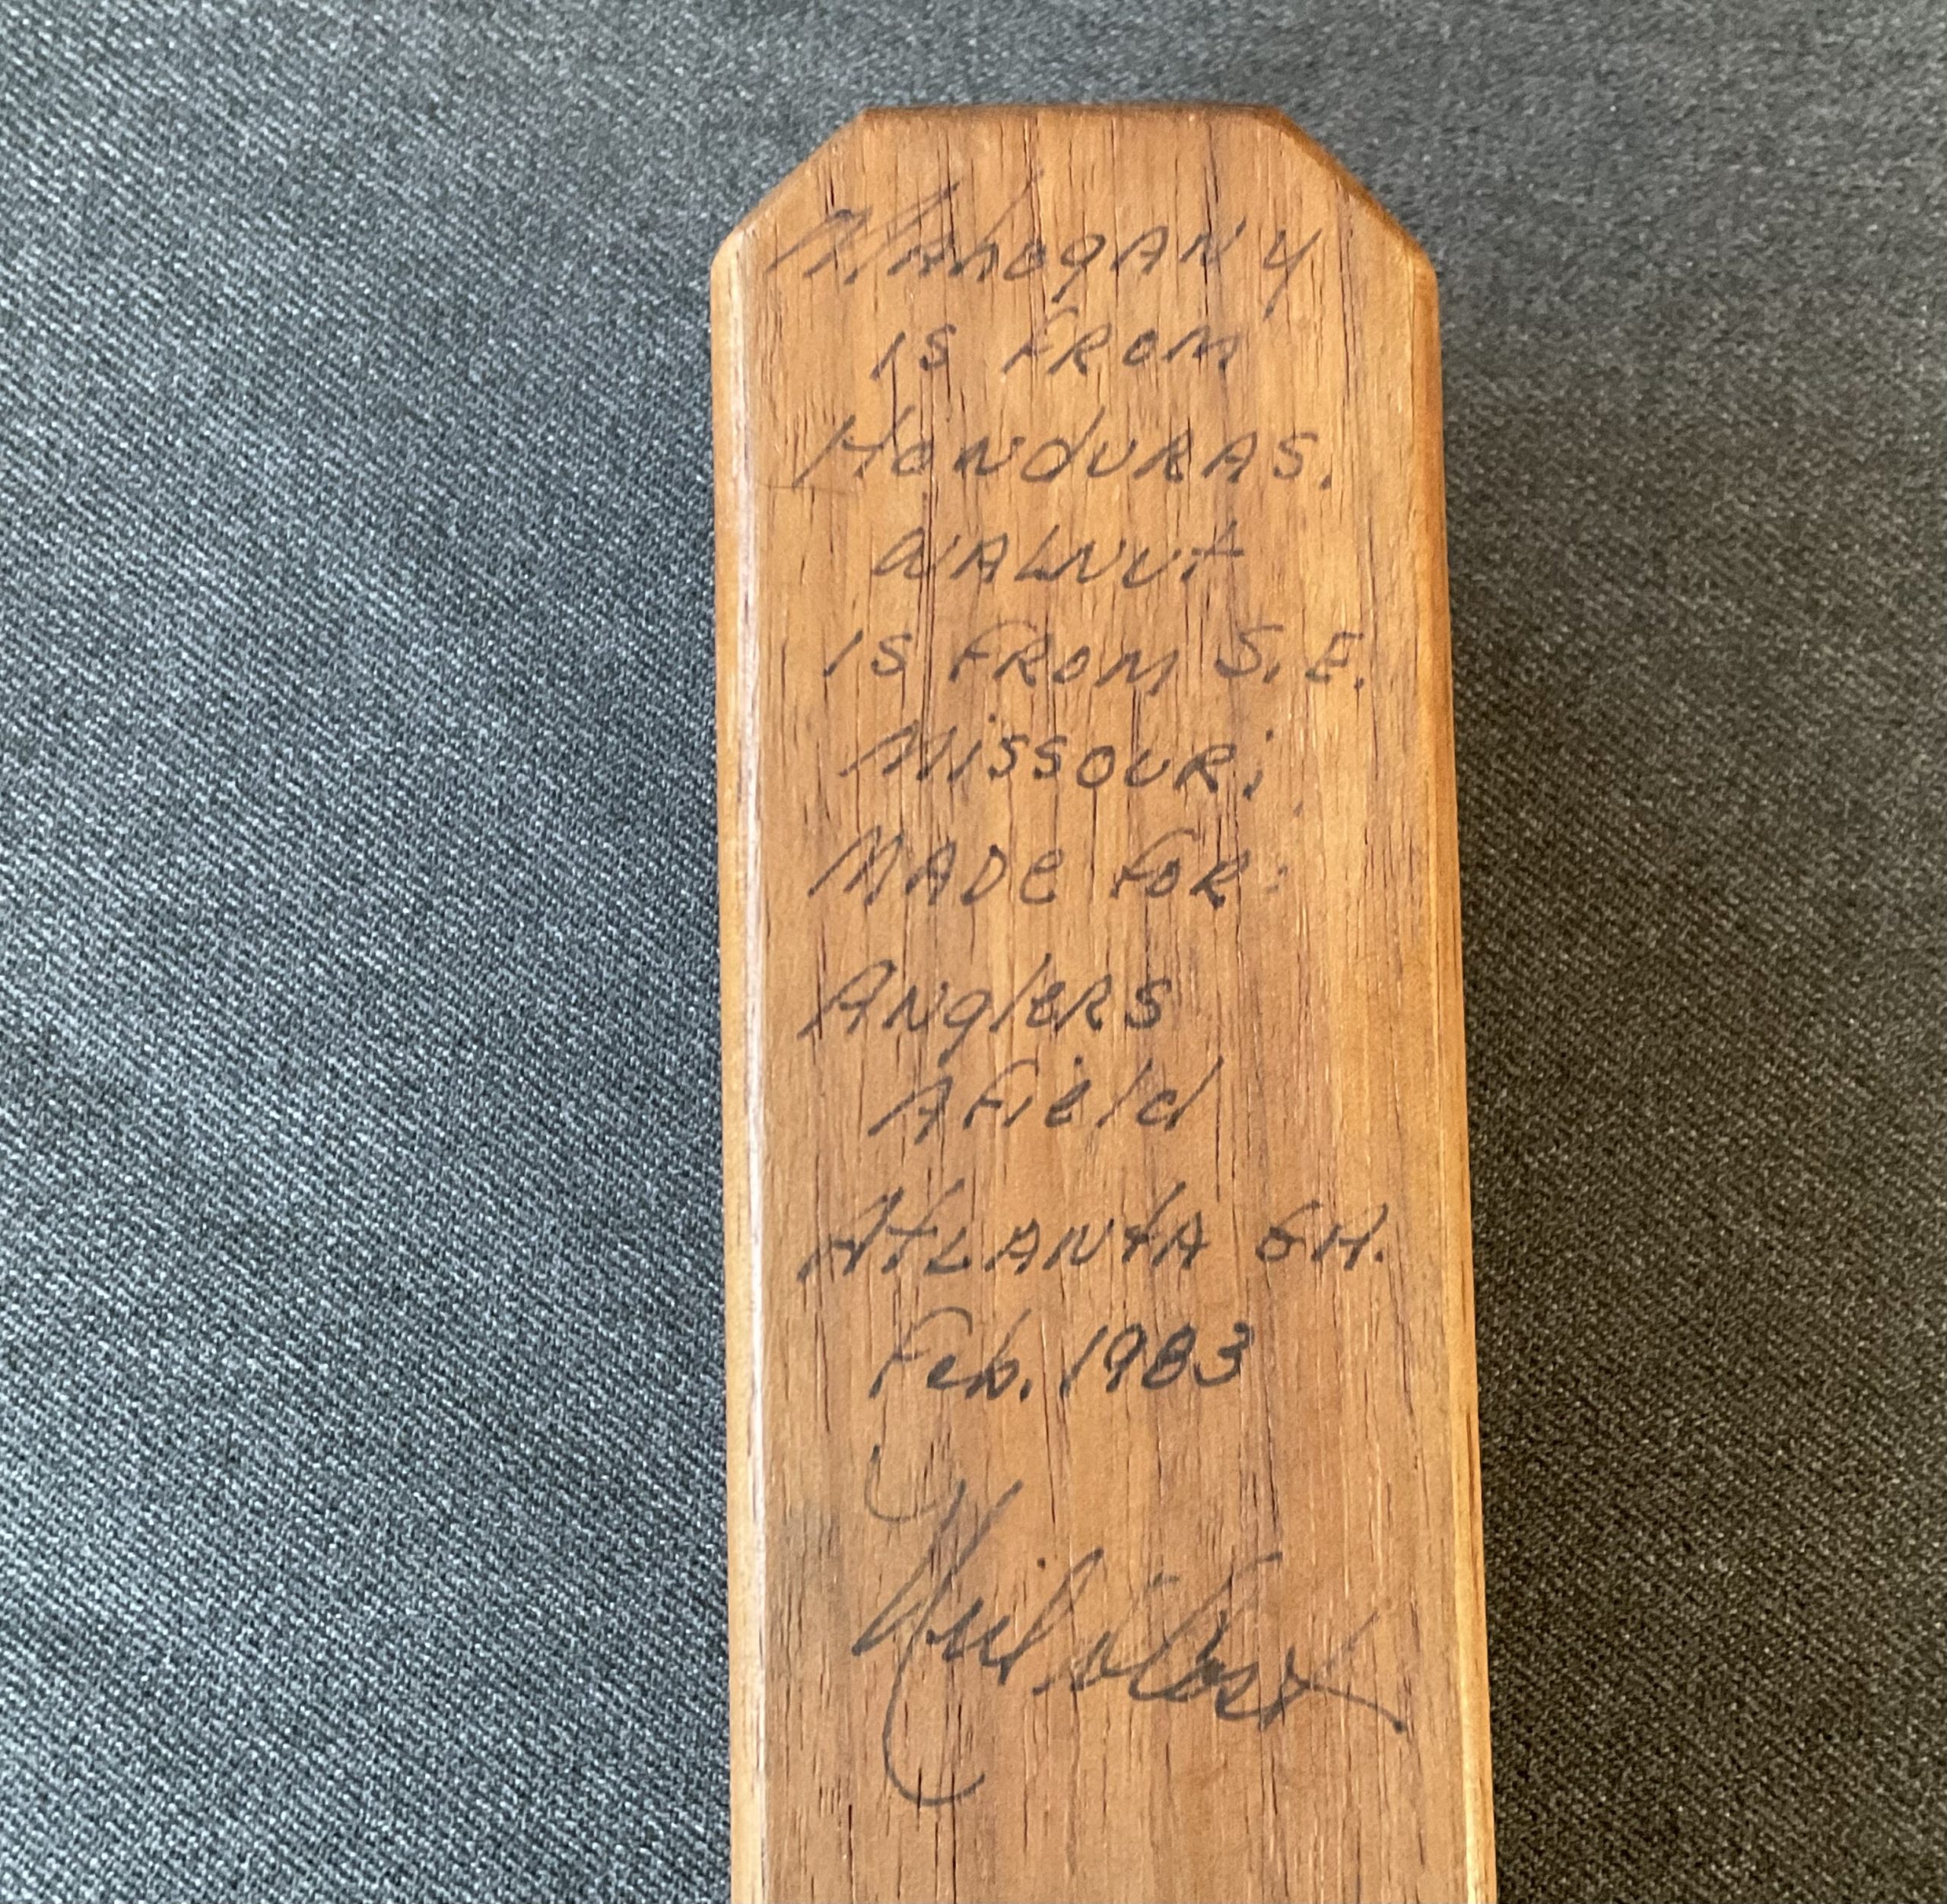 Mahogany
is from
Honduras.
Walnut
is from S.E.
Missouri
Made for:
Anglers
Afield
Atlanta GA.
Feb. 1983